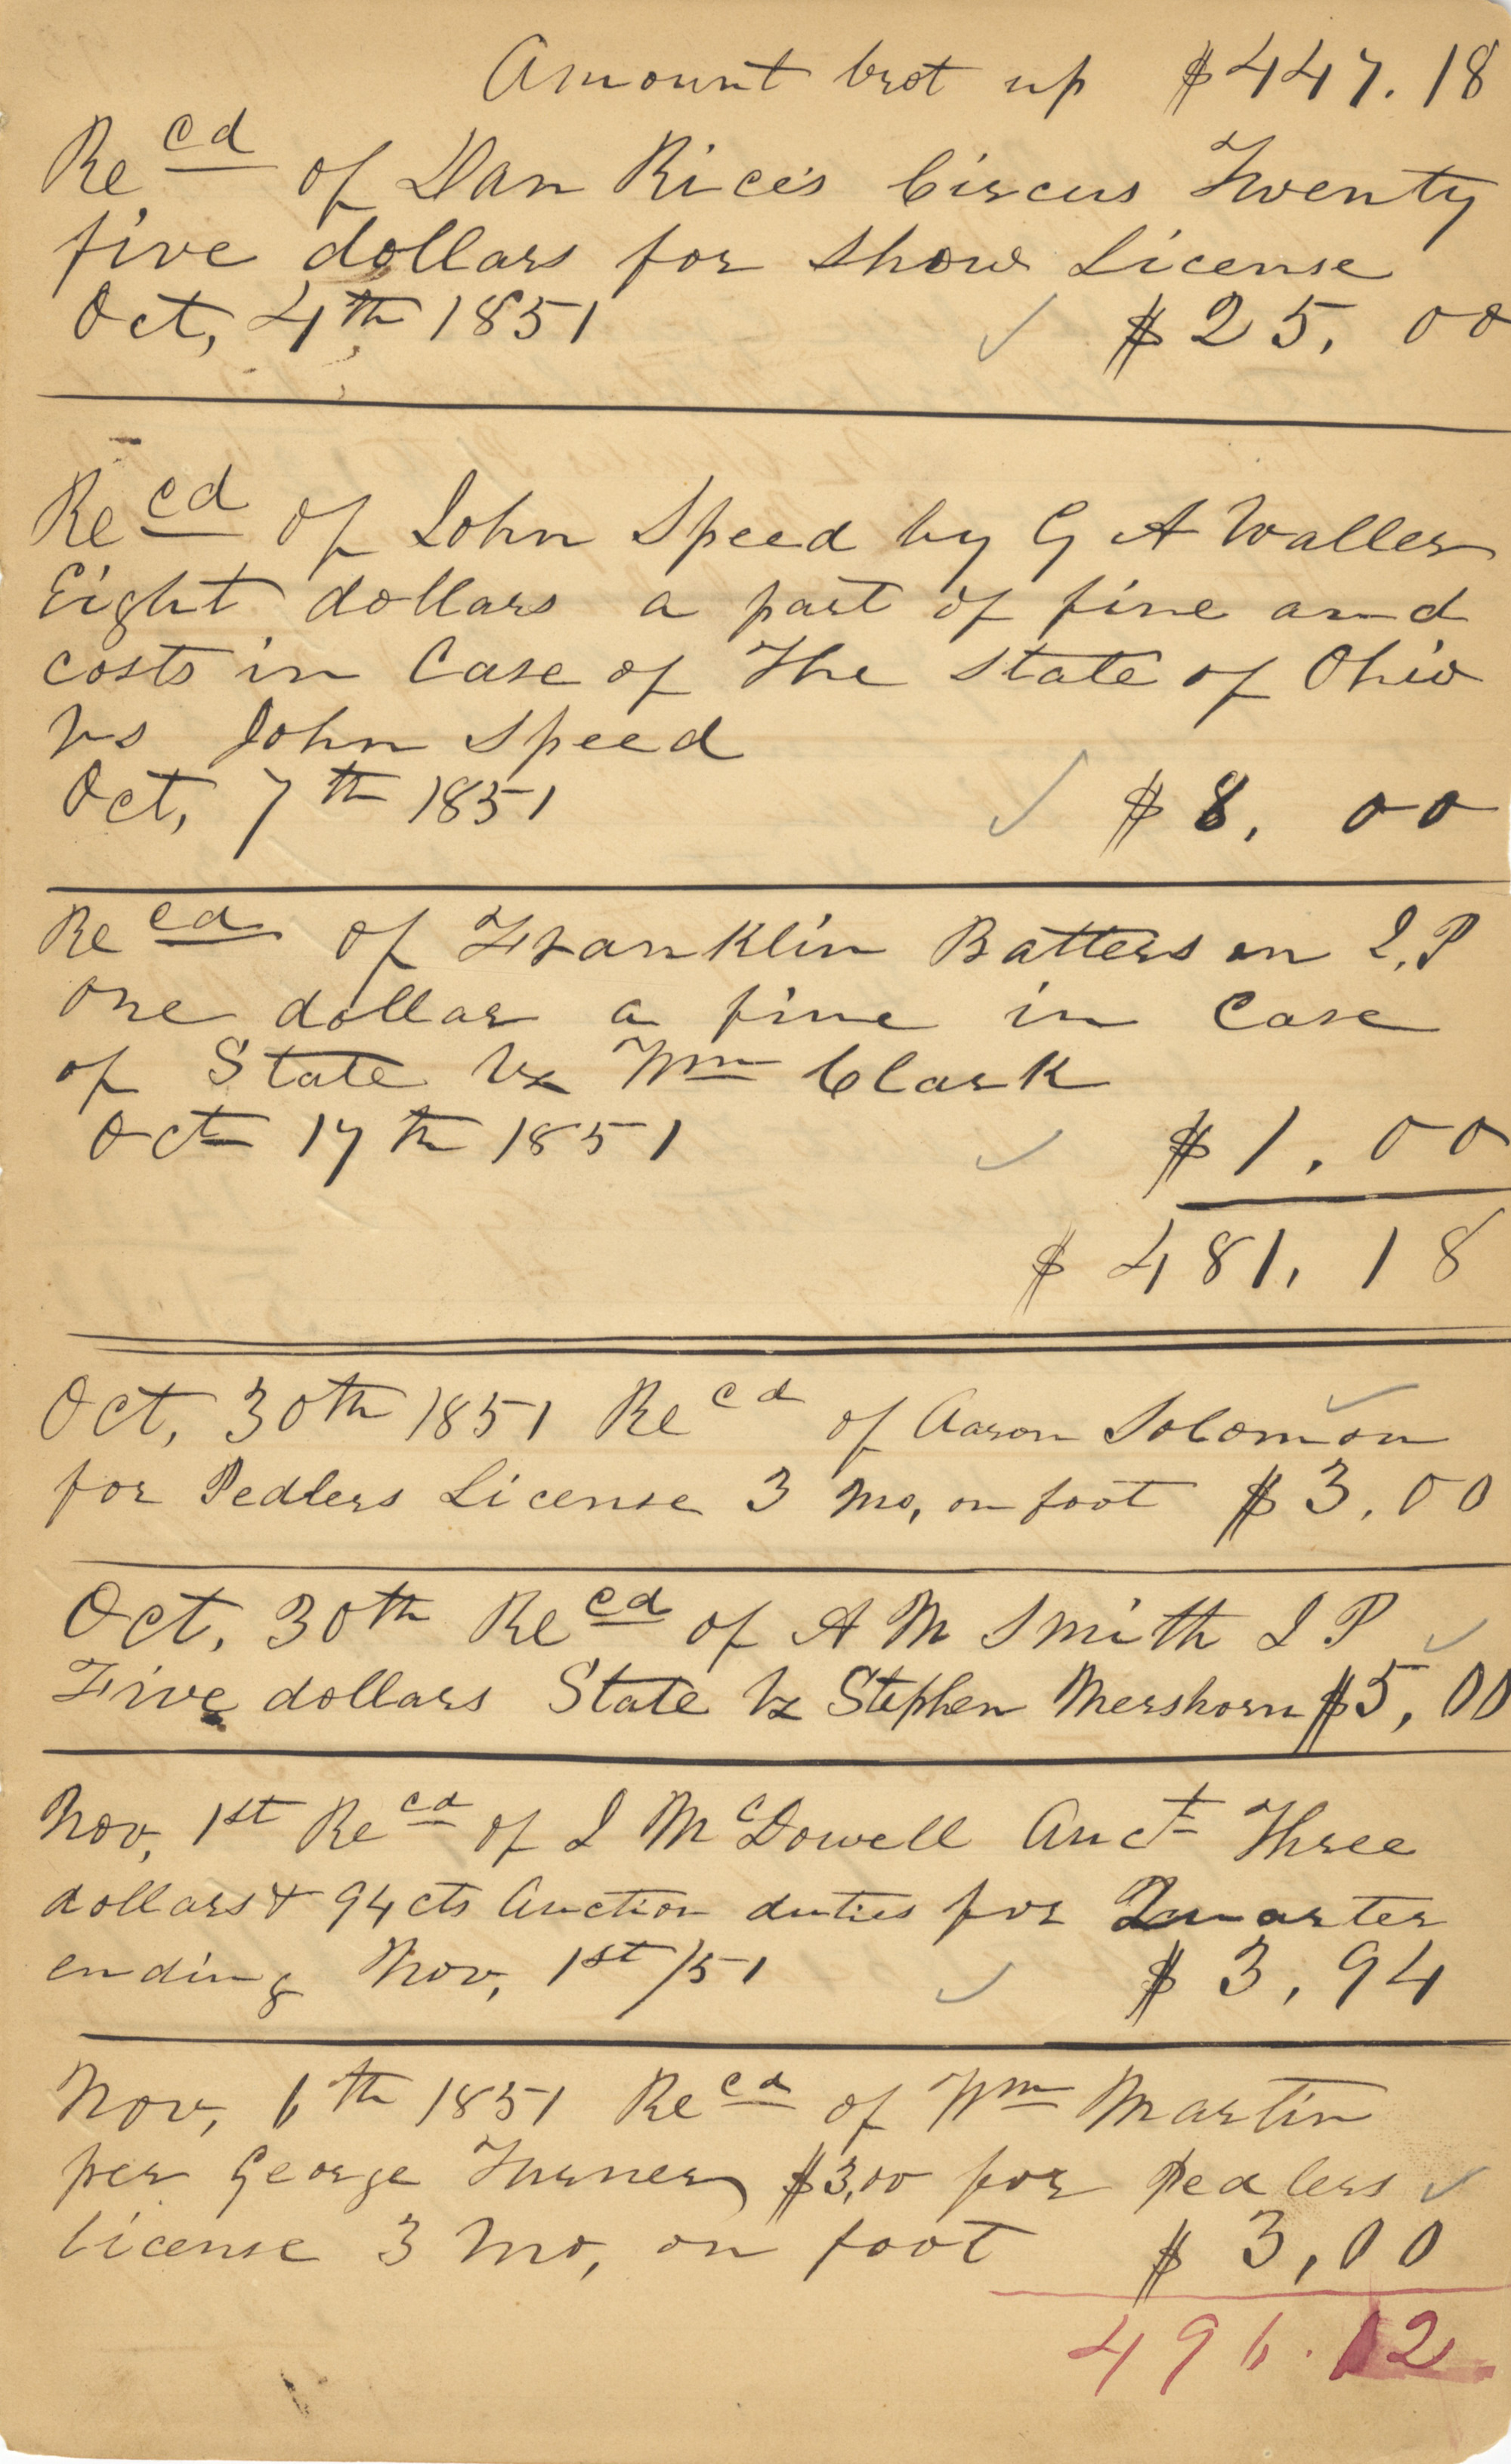 Amount brot up $447.18
Recd of Dan Rice's Circus Twenty
five dollars for show License
Oct, 4th 1851 ✓ $25,00
Recd of John Speed by G A Waller
Eight dollars a part of fine and
costs in Case of The State of Ohio
vs John Speed
Oct, 7th 1851 ✓ $8,00
Recd of Franklin Batterson J.P
One dollar a fine in Case
of State vs Wm Clark
Oct 17th 1851 ✓ $1.00
$481,18
Oct, 30th 1851 Recd of Aaron Solomon ✓
for Pedlers License 3 Mo, on foot $3.00
Oct, 30th Recd of A M Smith J P ✓
Five dollars State vs Stephen Mershorn $5,00
Nov, 1st Recd of J McDowell Auct Three
dollars & 94 cts Auction duties for Quarter
ending Nov, 1st/51 ✓ $3,94
Nov, 6th 1851 Recd of Wm Martin
per George Turner $3,00 for Pedlers ✓
License 3 Mo, on foot $3,00
496.12